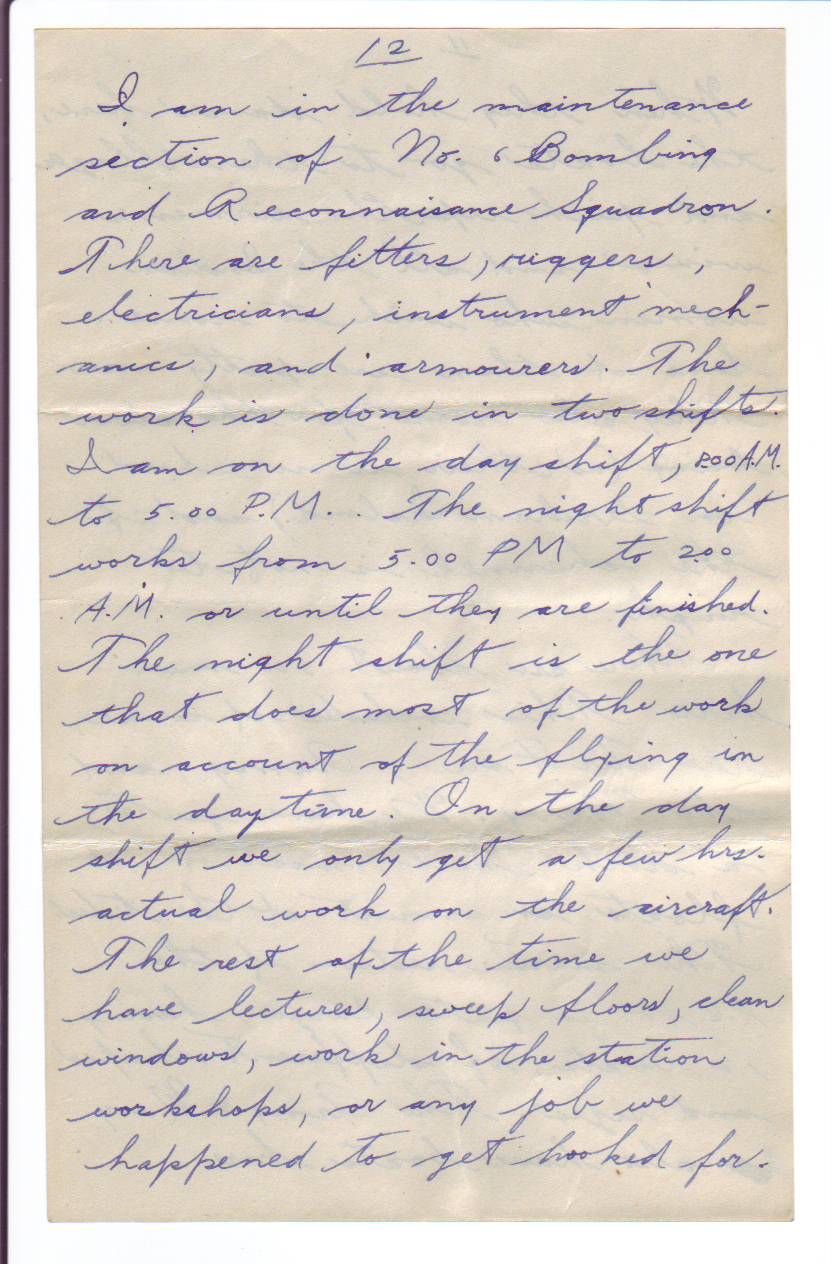 12
I am in the maintenance
section of No. 6 Bombing
and Reconnaisance Squadron.
There are fitters, riggers,
electricians, instrument mech-
anics, and armourers. The
work is done in two shifts.
I am on the day shift, 8.00 A.M.
to 5.00 P.M.. The night shift
works from 5.00 PM to 2.00
A.M. or until they are finished.
The night shift is the one
that does most of the work
on account of the flying in
the daytime. On the day
shift we only get a few hrs.
actual work on the aircraft.
The rest of the time we
have lectures, sweep floors, clean
windows, work in the station
workshops, or any job we
happened to get hooked for.